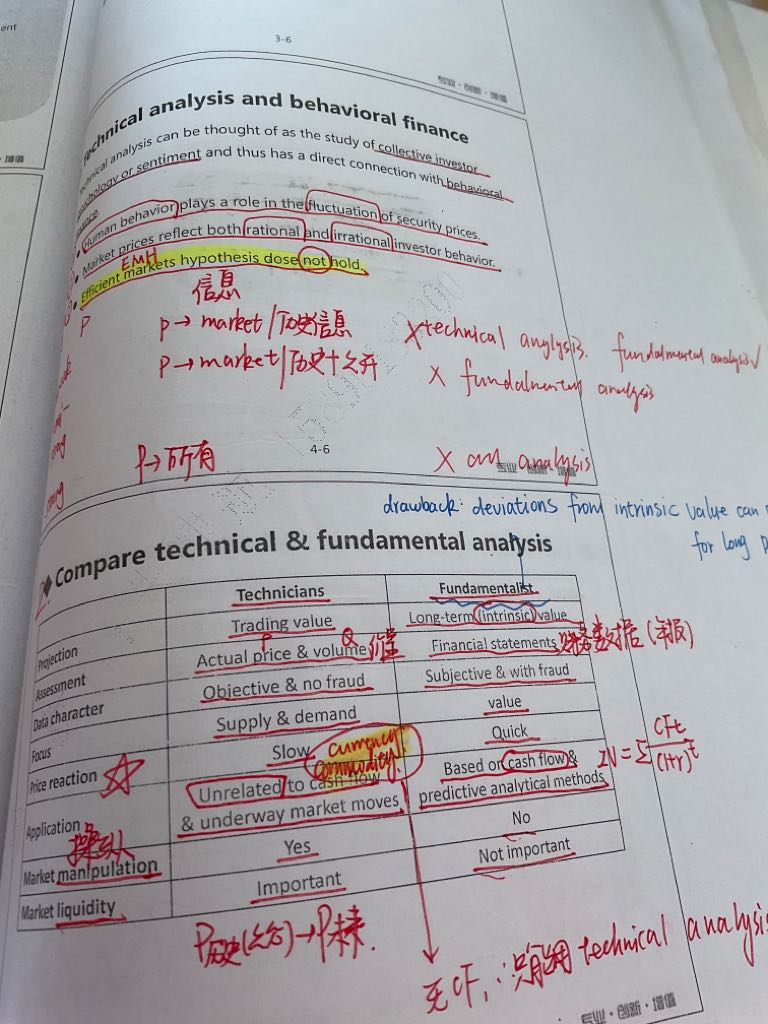 ent
3-6
专业·创新·增值
·增值
echnical analysis and behavioral finance
hnical analysis can be thought of as the study of collective investor
ychology or sentiment and thus has a direct connection with behavioral
nance.
Human behavior plays a role in the fluctuation of security prices.
• Market prices reflect both rational and irrational investor behavior.
EMH
• Efficient markets hypothesis dose not hold.
信息
P
p→ market/历史信息
X technical anglysis. fundalmental analysis√
p→ market/历史+公开
X fundalmental analysis
P→所有
X all analysis
4-6
专业·创新·增值
drawback: deviations from intrinsic value can
for long
Compare technical & fundamental analysis
Technicians Fundamentalist
Projection Trading value Long-term (intrinsic) value
P Q
Assessment Actual price & volume 价量 Financial statements 财务数据(年报)
Data character Objective & no fraud Subjective & with fraud
Focus Supply & demand value
Price reaction Slow Quick
currency
commodity.
Application Unrelated to cash flow & underway market moves Based on cash flow & predictive analytical methods
IV = Σ CFt/(1+r)^t
操纵
Market manipulation Yes No
Market liquidity Important Not important
P历史(公知)→P未来.
无CF, ∴只能用 technical analysis
专业·创新·增值